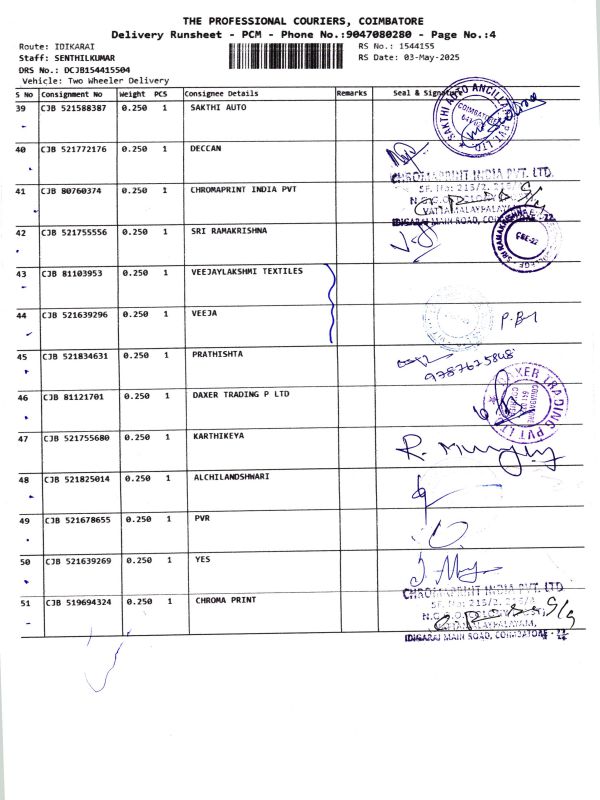 THE PROFESSIONAL COURIERS, COIMBATORE
Delivery Runsheet - PCM - Phone No.:9047080280 - Page No.:4
Route: IDIKARAI RS No.: 1544155
Staff: SENTHILKUMAR RS Date: 03-May-2025
DRS No.: DCJB154415504
Vehicle: Two Wheeler Delivery
S No Consignment No Weight PCS Consignee Details Remarks Seal & Signature
39 CJB 521588387 0.250 1 SAKTHI AUTO
SAKTHI AUTO ANCILLARY PVT. LTD.
COIMBATORE
40 CJB 521772176 0.250 1 DECCAN
CHROMAPRINT INDIA PVT. LTD.
SF. No: 215/2, 215/4
41 CJB 80760374 0.250 1 CHROMAPRINT INDIA PVT
VATTAMALAYPALAYAM,
IDIGARAI MAIN ROAD, COIMBATORE - 22
42 CJB 521755556 0.250 1 SRI RAMAKRISHNA
SRI RAMAKRISHNA COLLEGE
CBE-22
43 CJB 81103953 0.250 1 VEEJAYLAKSHMI TEXTILES
44 CJB 521639296 0.250 1 VEEJA
P.B1
45 CJB 521834631 0.250 1 PRATHISHTA
9787625808
46 CJB 81121701 0.250 1 DAXER TRADING P LTD
DAXER TRADING PVT LTD
COIMBATORE
47 CJB 521755680 0.250 1 KARTHIKEYA
48 CJB 521825014 0.250 1 ALCHILANDSHWARI
49 CJB 521678655 0.250 1 PVR
50 CJB 521639269 0.250 1 YES
CHROMAPRINT INDIA PVT. LTD
SF. No: 215/2, 215/4
51 CJB 519694324 0.250 1 CHROMA PRINT
VATTAMALAYPALAYAM,
IDIGARAI MAIN ROAD, COIMBATORE - 22